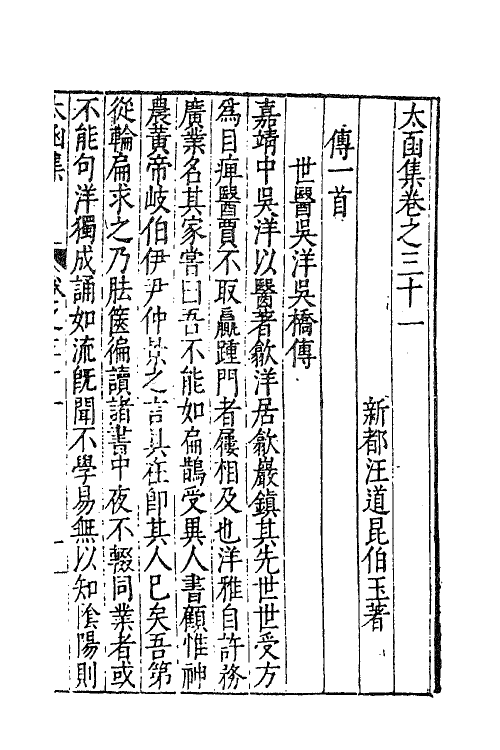 太函集卷之三十一
新都汪道昆伯玉著
傳一首
世醫吳洋吳橋傳
嘉靖中吳洋以醫著歙洋居歙巖鎮其先世世受方
為目痺醫賈不取贏踵門者屨相及也洋雅自許務
廣業名其家嘗曰吾不能如扁鵲受異人書顧惟神
農黃帝岐伯伊尹仲景之言具在卽其人已矣吾第
從輪扁求之乃胠篋徧讀諸書中夜不輟同業者或
不能句洋獨成誦如流旣聞不學易無以知陰陽則
太函集 卷之三十一 一